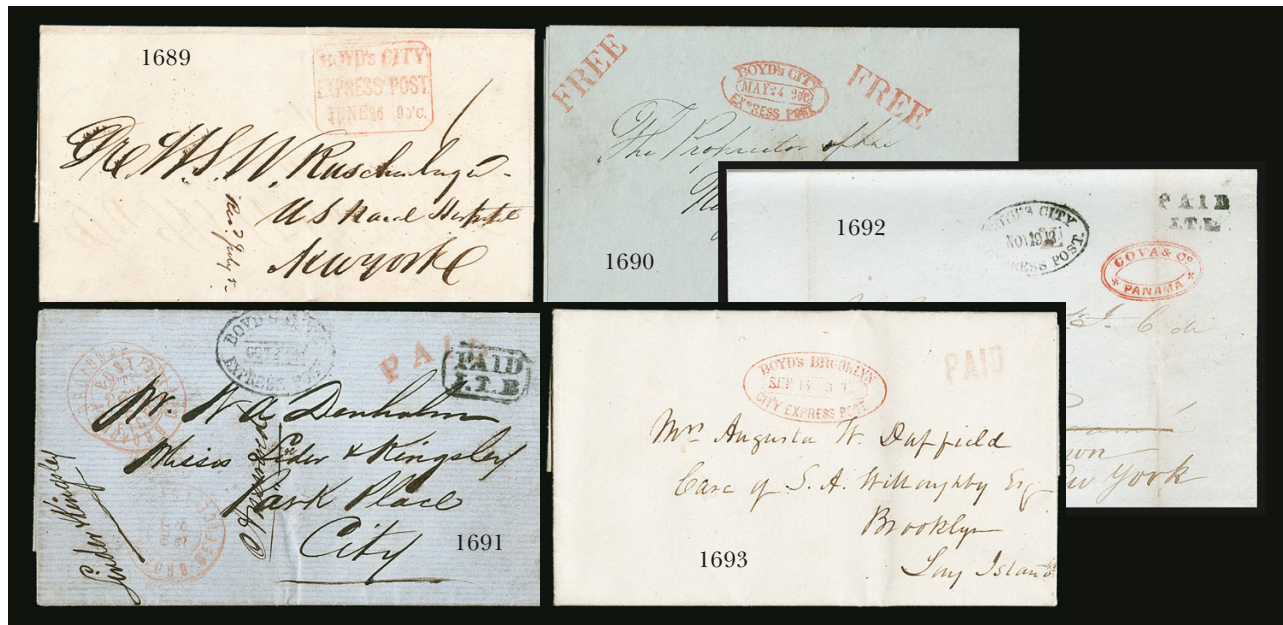 1689
BOYD'S CITY
EXPRESS POST.
JUNE 26 9 O'C.
Dr W.S.W. Ruschenberger
U S Naval Hospital
New York
FREE
BOYD'S CITY
MAY 24
EXPRESS POST
FREE
The Proprietor of the
1690
1692
CITY
NOV 19
EXPRESS POST.
PAID
J.T.B.
COVA & Co
PANAMA
New York
BOYD'S CITY
OCT
EXPRESS POST
PAID
PAID
J.T.B
Mr. W A Denholm
Messrs Linder & Kingsley
Park Place
City
Linder Kingsley
1691
BOYD'S BROOKLYN
SEP 15
CITY EXPRESS POST.
PAID
Mrs Augusta W. Daffield
Care of S. A. Willoughby Esq
Brooklyn
Long Island
1693